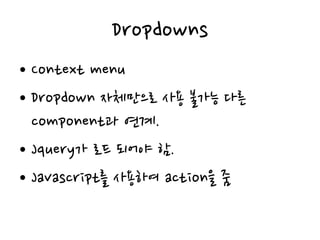 Dropdowns
• Context menu
• Dropdown 자체만으로 사용 불가능 다른
component과 연계.
• Jquery가 로드 되어야 함.
• Javascript를 사용하여 action을 줌